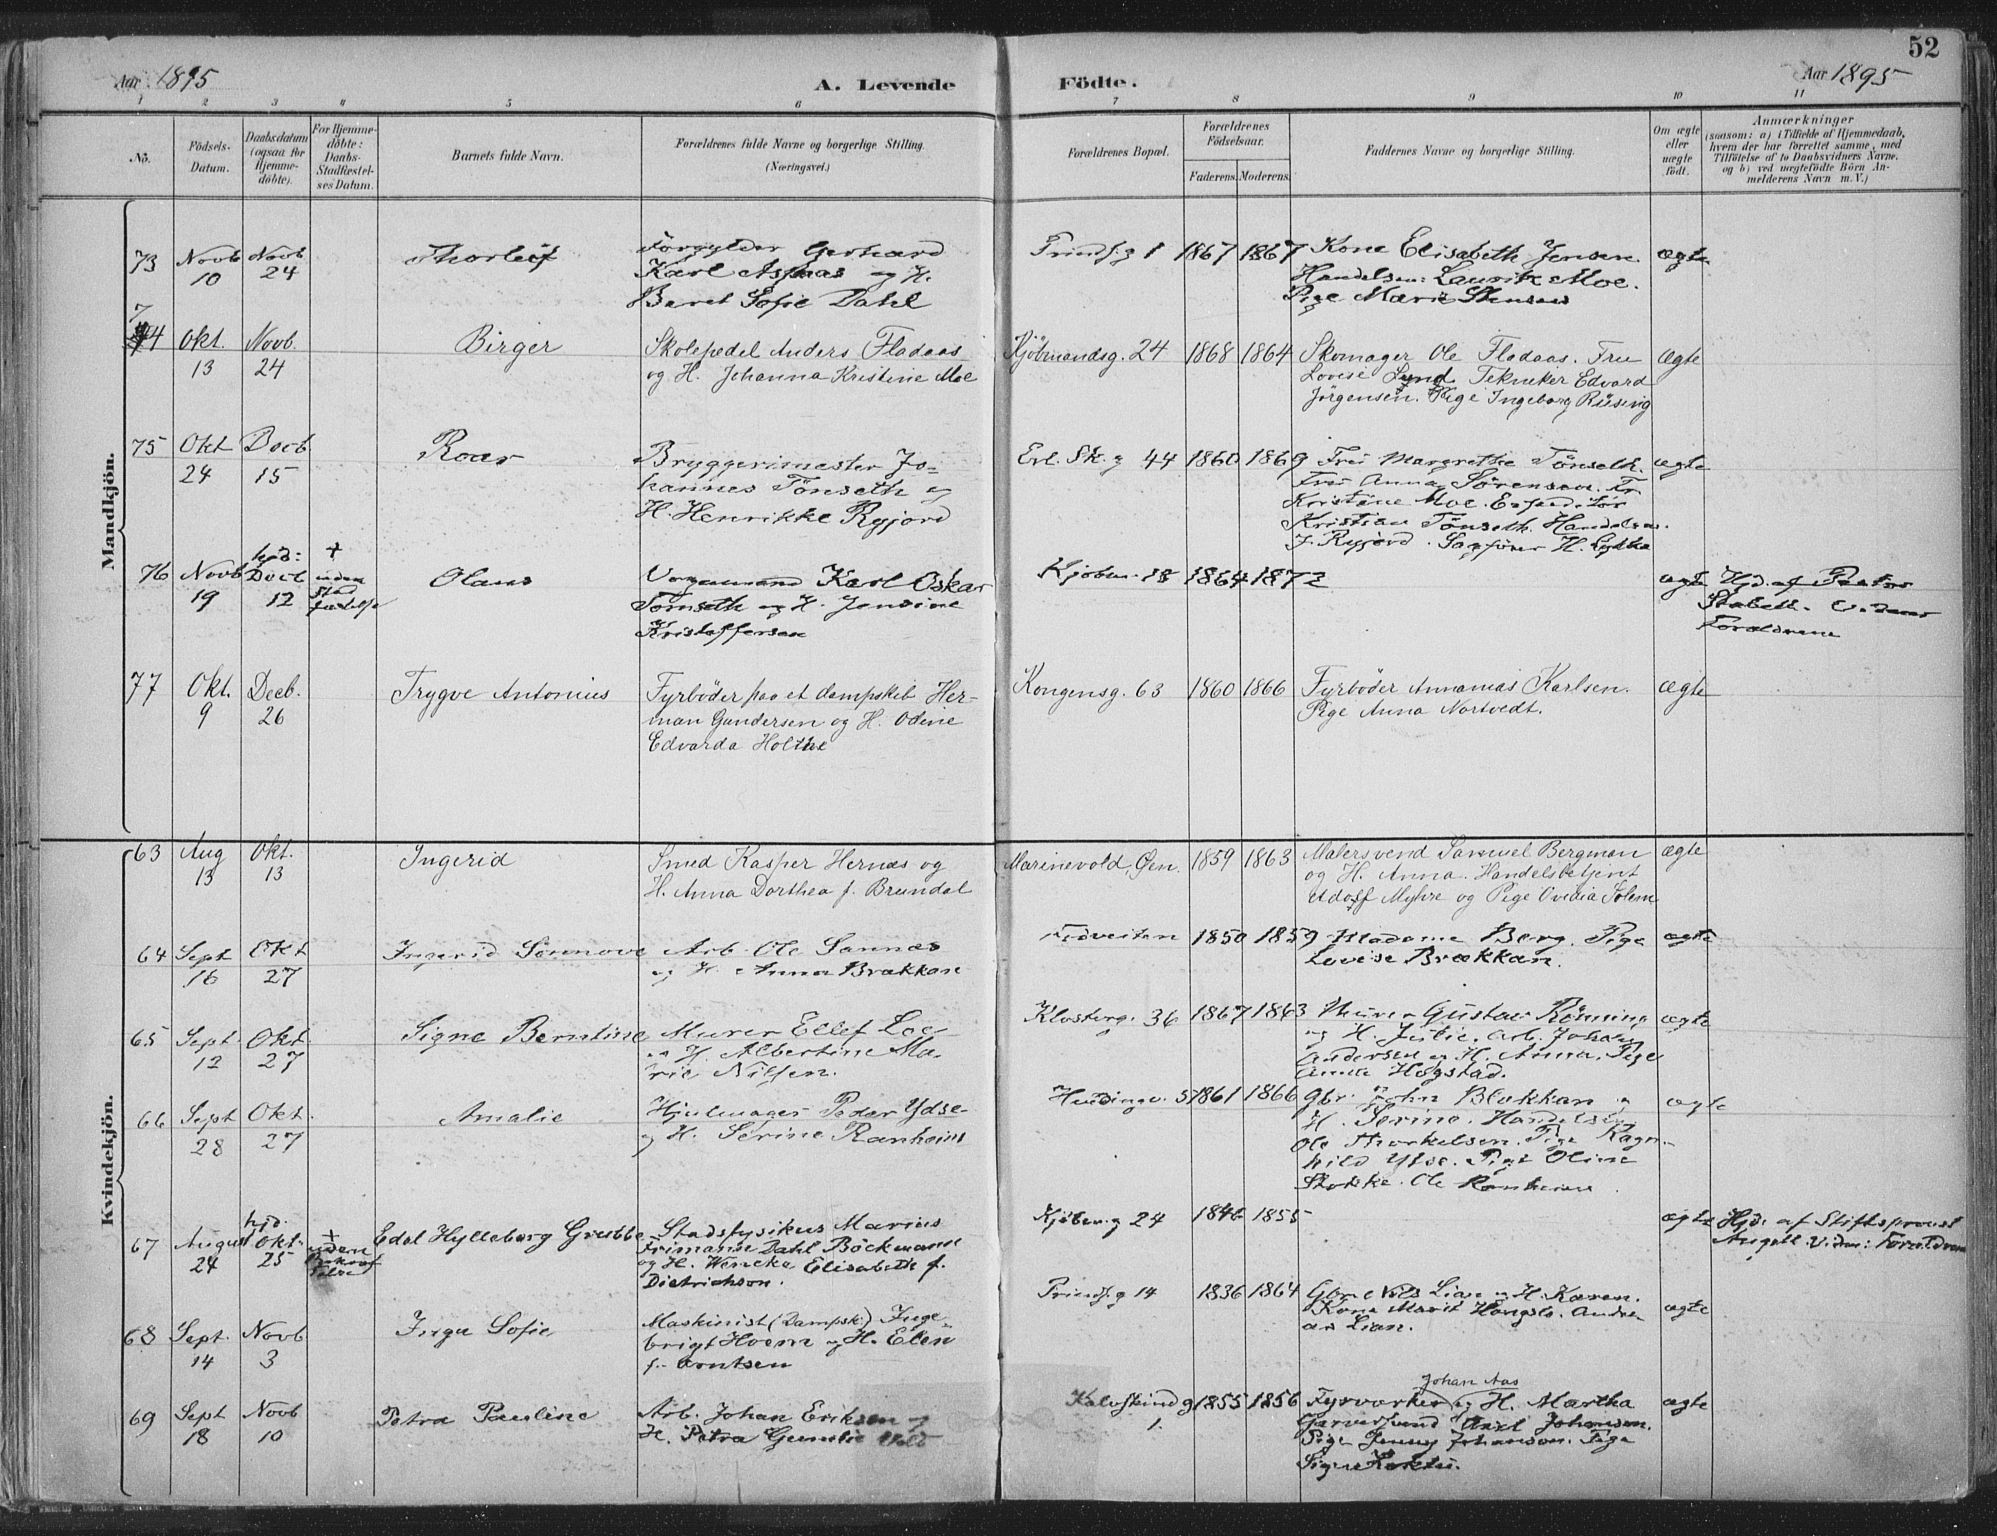 52
Aar 1895
A. Levende Födte.
Aar 1895
1 2 3 4 5 6 7 8 9 10 11
No.
Födsels-Datum.
Daabsdatum (ogsaa for Hjemme-döbte).
For Hjemme-döbte: Daabs-Stadfæstel-ses Datum.
Barnets fulde Navn.
Forældrenes fulde Navne og borgerlige Stilling. (Næringsvei.)
Forældrenes Bopæl.
Forældrenes Födselsaar.
Faderens. Moderens.
Faddernes Navne og borgerlige Stilling.
Om ægte eller uægte födt.
Anmærkninger
(saasom: a) i Tilfælde af Hjemmedaab, hvem der har forrettet samme, med Tilföielse af to Daabsvidners Navne. og b) ved uægtefödte Börn An-melderens Navn m. V.)
Mandkjön.
73 Novb 10 Novb 24 Thorleif Forgylder Gerhard
Karl Aspaas og H.
Beret Sofie Dahl
Prindsg 1 1867 1867 Kone Elisabeth Jensen.
Handelsm: Laurits Moe.
Pige Marie Stensaas
ægte
74 Okt. 13 Novb. 24 Birger Skolepedel Anders Flodaas
og H. Johanna Kristine Moe
Kjöbmandsg. 24 1868 1864 Skomager Ole Flodaas. Fru
Lovise Lund Tekniker Edvard
Jörgensen. Pige Ingeborg Rüsing
Ægte
75 Okt 24 Decb 15 Roar Bryggerimester Jo-
hannes Tönseth og
H. Henrikke Ryjord
Erl. Sk. g 44 1860 1869 Fru Margrethe Tönseth.
Fru Anna Sörensen. Fr
Kristine Moe. Expeditör
Kristian Tönseth. Handelsm.
J. Ryjord. Sagförer H.
ægte
76 Novb 19 hjd: Decb 12 + uden Stad fæstelse Olaus Vognmand Karl Oskar
Tomseth og H. Jensine
Kristoffersen
Kjöbm. 18 1864 1872 ægte Hjd. af Pastor
Stabell. Vidner
Forældrene
77 Okt. 9 Decb. 26 Trygve Antonius Fyrböder paa et dampskib Her-
man Gundersen og H. Odine
Edvarda Holthe
Kongensg. 63 1860 1866 Fyrböder Annanias Karlsen.
Pige Anna Nortvedt.
Ægte
Kvindekjön.
63 Aug 13 Okt. 13 Ingerid Smed Kasper Hernæs og
H. Anna Dorthea f. Brundal
Marinevold, Öen. 1859 1863 Malersvend Samuel Bergman
og H. Anna. Handelsbetjent
Adolf Myhre og Pige Ovidia Solem
ægte
64 Sept 16 Okt 27 Ingerid Sönnove Arb. Ole Sannæs
og H. Anna Brækkan
Fidveiten 1850 1859 Madame Berg. Pige
Lovise Brækkan.
ægte
65 Sept 12 Okt. 27 Signe Berntine Murer Ellef Loe
og H. Albertine Ma-
rie Nilsen.
Klosterg. 36 1867 1863 Murer Gustav Rönning
og H. Julie. Arb. Johan
Andersen og H. Anna. Pige
Anna Hogstad.
ægte
66 Sept 28 Okt. 27 Amalie Hjulmager Peder Ydse
og H. Serine Ranheim
1861 1866 Gbr. John Blakkan og
H. Serine. Handelsm
Ole Thorkelsen. Pige Ragn-
hild Ydse. Pige Oline
Ole Ranheim.
ægte
67 August 24 hjd. Okt. 25 + uden Edel Hylleborg Grubbe Stadsfysikus Marius
Frimann Dahl Böckmann
og H. Wencke Elisabeth f.
Dietrichson.
Kjöbm. g 24 1846 1855 ægte Hjd. af Stiftsprovst
Angell. Vidn: Forældrene
68 Sept. 14 Novb 3 Inga Sofie Maskinist (Dampsk.) Inge-
brigt Hoem og H. Elen
f. Arntsen
Prindsg 14 1836 1864 Gbr Nils Lian og H. Karen.
Kone Marit Hongslo. Andre
as Lian.
ægte
69 Sept 18 Novb 10 Petra Pauline Arb. Johan Eriksen og
H. Petra Gunelie
Kalvskindg 1. 1855 1856 Johan Aas
Fyrvorker og H. Martha
Garversvend Axel Johansen.
Pige Jenny Johansen. Pige
Signe
ægte